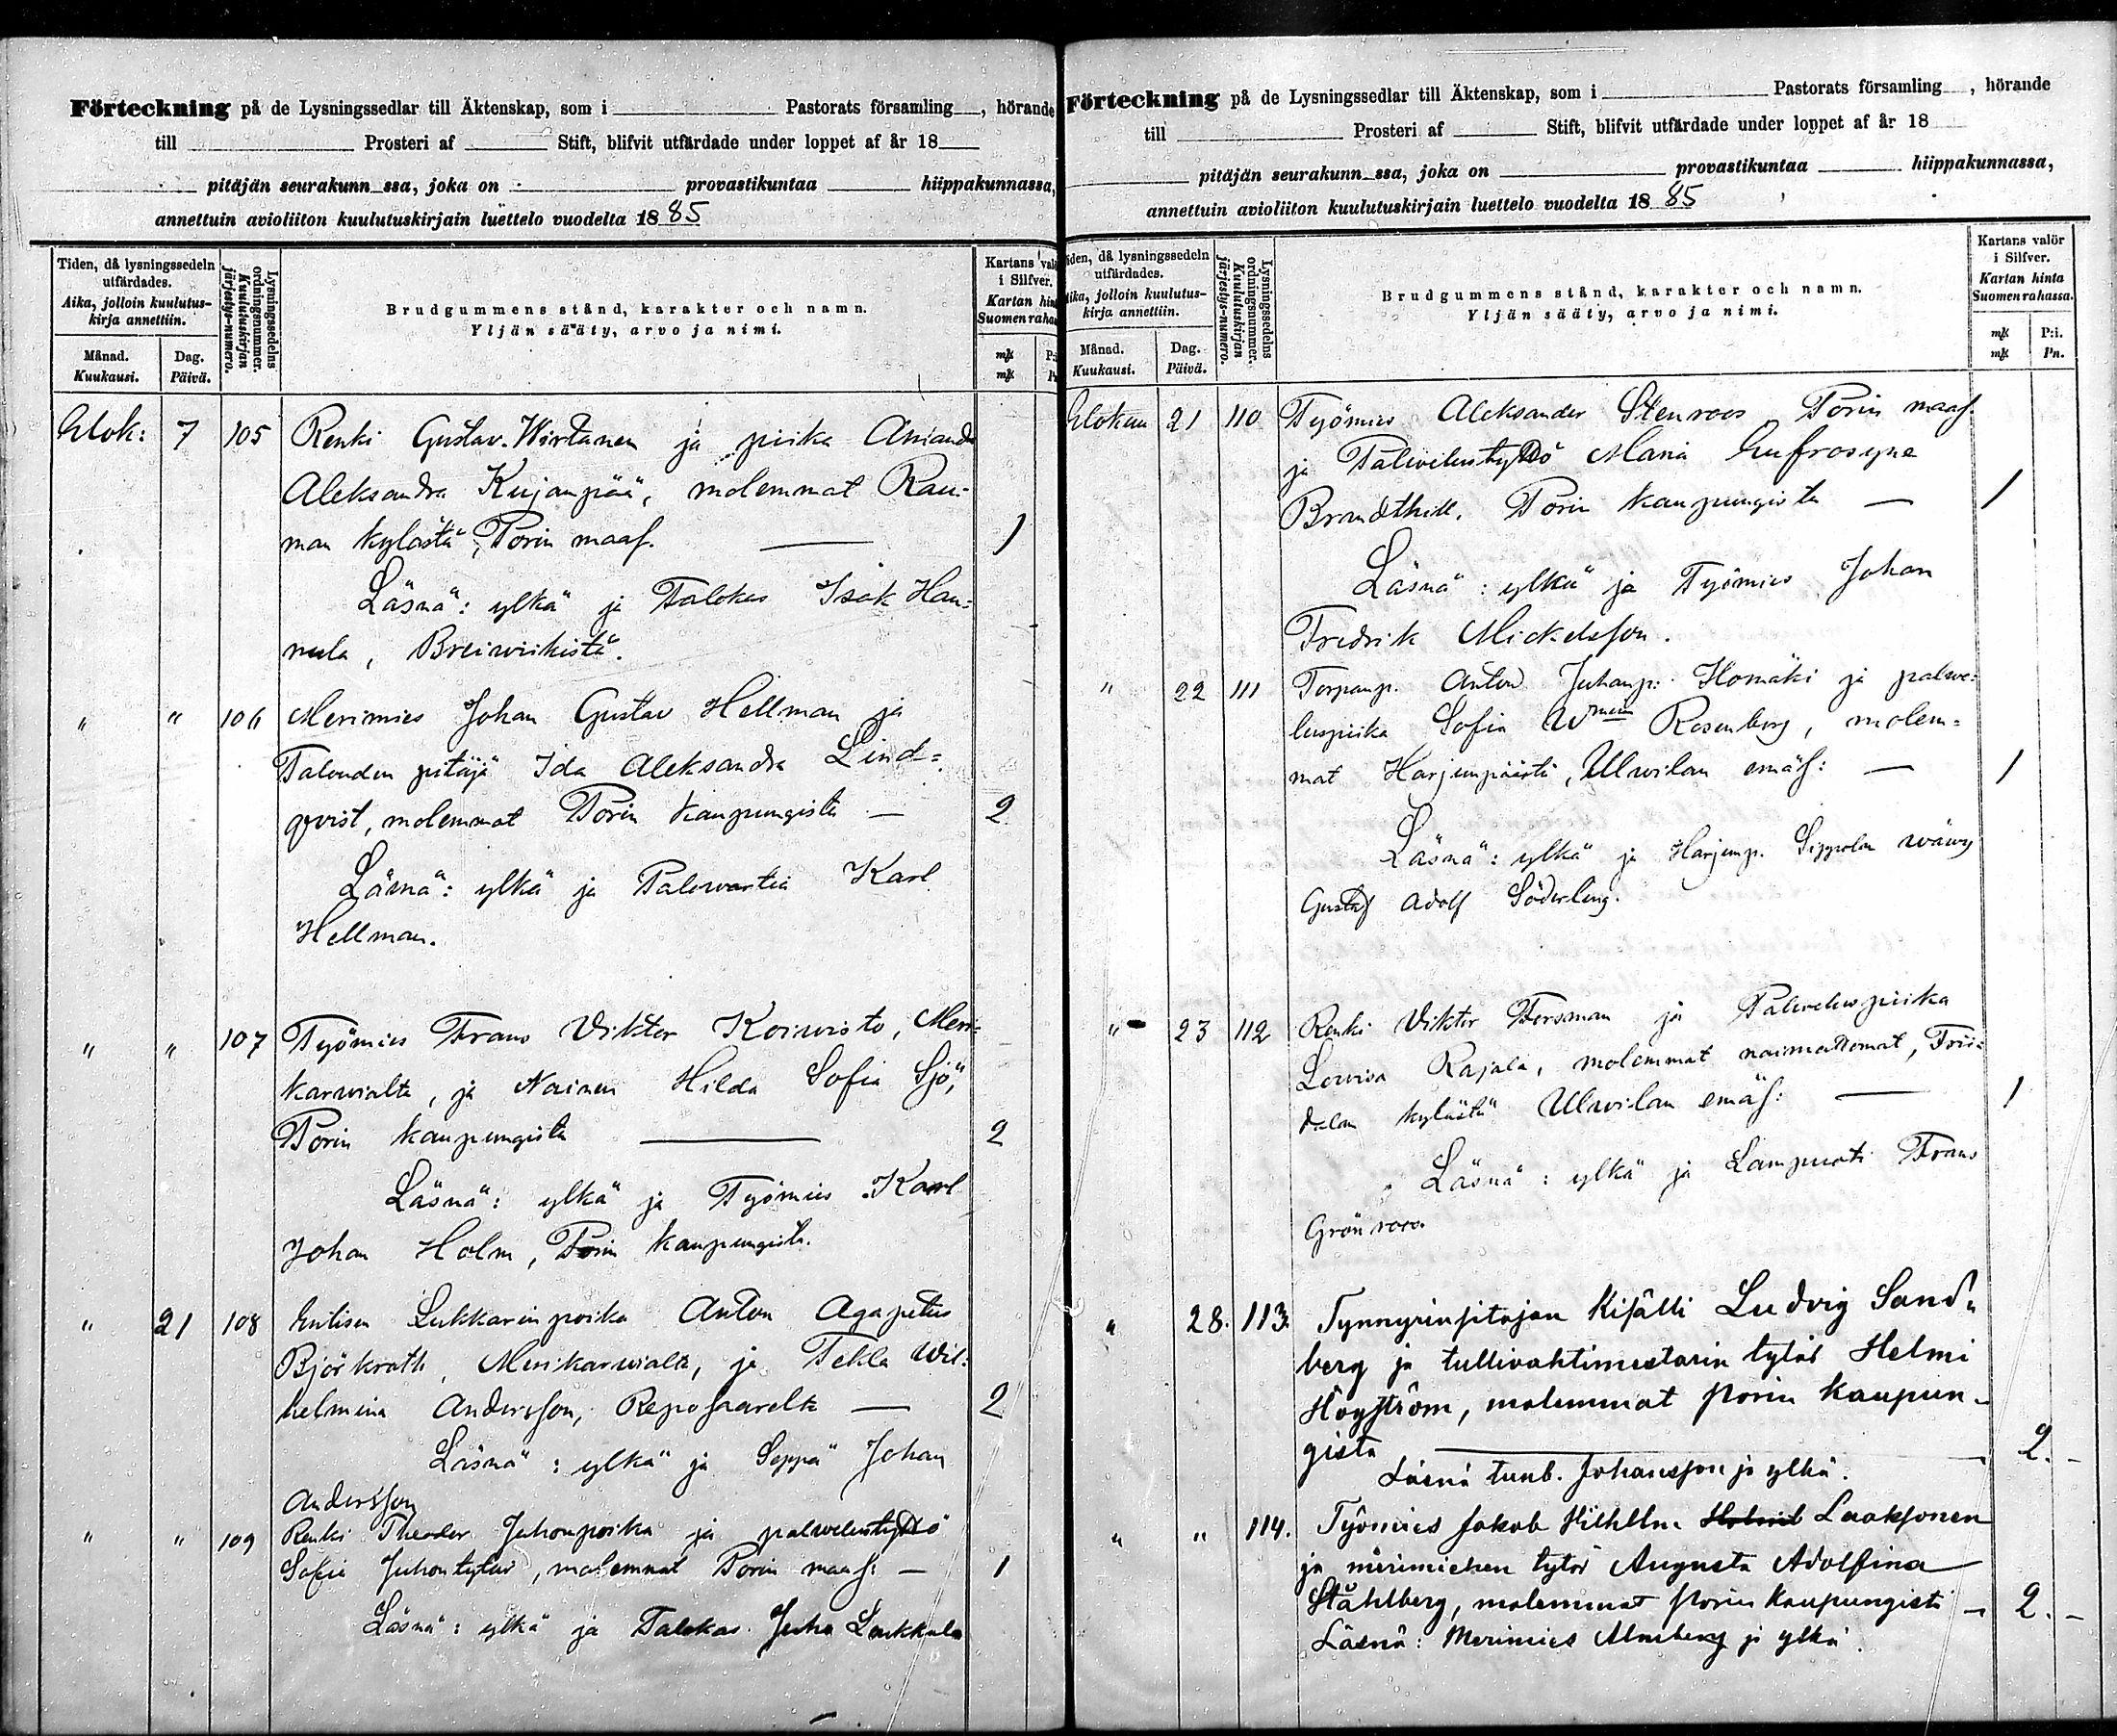 Förteckning på de Lysningssedlar till Äktenskap, som i Pastorats församling , hörande
till Prosteri af Stift, blifvit utfärdade under loppet af år 18
pitäjän seurakunn ssa, joka on provastikuntaa hiippakunnassa,
annettuin avioliiton kuulutuskirjain luettelo vuodelta 1885
Tiden, då lysningssedeln utfärdades.
Aika, jolloin kuulutus-kirja annettiin.
Månad.
Kuukausi.
Dag.
Päivä.
Lysningssedelns ordningsnummer.
Kuulutuskirjan järjestys-numero.
Brudgummens stånd, karakter och namn.
Yljän sääty, arvo ja nimi.
Kartans val
i Silfver.
Kartan hin
Suomen raha
mk
mk
Elok: 7 105 Renki Gustav Wirtanen ja piika Amanda
Aleksandra Kujanpää, molemmat Rau-
man kylästä, Porin maas. — 1
Läsnä: ylkä ja Talokas Isak Han-
nula, Breiwiikistä.
" " 106 Merimies Johan Gustav Hellman ja
Talouden pitäjä Ida Aleksandra Lind-
qvist, molemmat Porin kaupungista — 2
Läsnä: ylkä ja Palowartia Karl
Hellman.
" " 107 Työmies Frans Viktor Koiwisto, Meri-
karwialta, ja Nainen Hilda Sofia Sjö,
Porin kaupungista — 2
Läsnä: ylkä ja Työmies Karl
Johan Holm, Porin kaupungista.
" 21 108 Entisen Lukkarin poika Anton Agapetus
Björkroth, Merikarwialta, ja Tekla Wil-
helmina Andersson, Reposaarelta — 2
Läsnä: ylkä ja Seppä Johan
Andersson
" " 109 Renki Theodor Juhonpoika ja palwelustyttö
Sofia Juhontytär, molemmat Porin maas: — 1
Läsnä: ylkä ja Talokas Juho Laukkala
Förteckning på de Lysningssedlar till Äktenskap, som i Pastorats församling , hörande
till Prosteri af Stift, blifvit utfärdade under loppet af år 18
pitäjän seurakunn ssa, joka on provastikuntaa hiippakunnassa,
annettuin avioliiton kuulutuskirjain luettelo vuodelta 1885
iden, då lysningssedeln utfärdades.
Aika, jolloin kuulutus-kirja annettiin.
Månad.
Kuukausi.
Dag.
Päivä.
Lysningssedelns ordningsnummer.
Kuulutuskirjan järjestys-numero.
Brudgummens stånd, karakter och namn.
Yljän sääty, arvo ja nimi.
Kartans valör
i Silfver.
Kartan hinta
Suomen rahassa.
mk P:i.
mk Pn.
Elokuu 21 110 Työmies Aleksander Stenroos Porin maas.
ja Palwelustyttö Maria Eufrosyne
Brandthill, Porin kaupungista — 1
Läsnä: ylkä ja Työmies Johan
Fredrik Mickelsson.
" 22 111 Torpanp. Anton Juhanp. Homäki ja palwe-
luspiika Sofia Wmina Rosenberg, molem-
mat Harjunpäästä, Ulwilan emäs: — 1
Läsnä: ylkä ja Harjunp. Sippolan wäwy
Gustaf Adolf Söderlung.
" 23 112 Renki Viktor Forsman ja Palweluspiika
Lowisa Rajala, molemmat naimattomat, Frii-
dalan kylästä Ulwilan emäs: — 1
Läsnä: ylkä ja Lampuoti Frans
Grönroos.
" 28. 113. Tynnyrinpitäjän kisälli Ludvig Sand-
berg ja tullivahtimestarin tytär Helmi
Högström, molemmat Porin kaupun-
gista — 2. -
Läsnä tunb. Johansson ja ylkä.
" " 114. Työmies Jakob Laaksonen
ja merimiehen tytär Augusta Adolfina
Ståhlberg, molemmat Porin kaupungista — 2. -
Läsnä: Merimies Almberg ja ylkä.